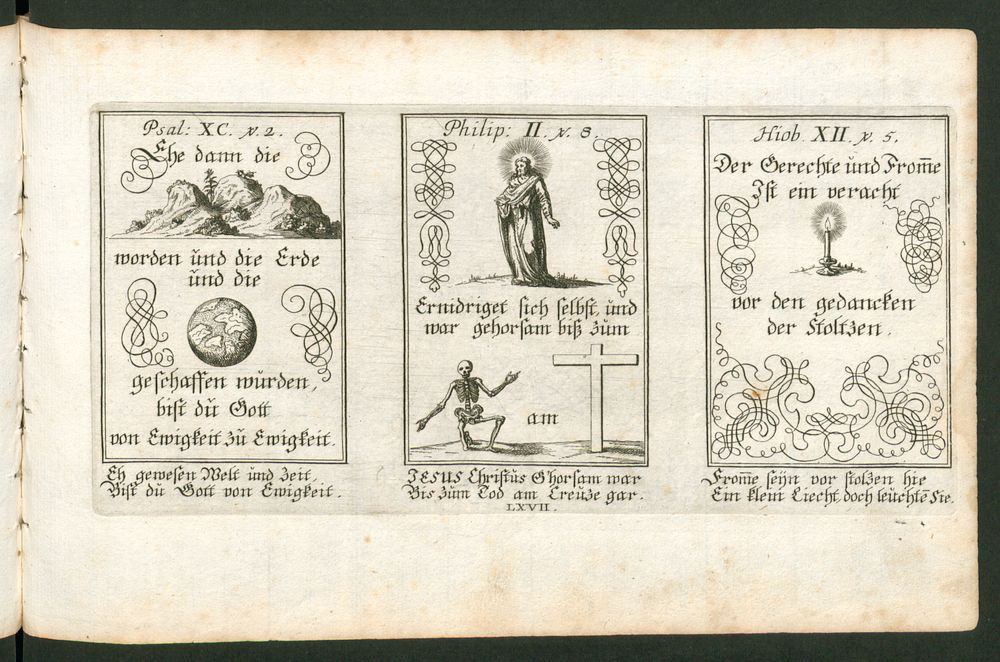 Psal: XC. v. 2.
Ehe dann die
worden und die Erde
und die
geschaffen würden,
bist dü Gott
von Ewigkeit zü Ewigkeit.
Eh gewesen Welt ünd Zeit,
Bist dü Gott von Ewigkeit.
Philip: II. v. 8.
Ernidriget sich selbst, ünd
war gehorsam biß züm
am
JESUS Christüs G'horsam war
Bis züm Tod am Creüze gar.
LXVII.
Hiob. XII. v. 5.
Der Gerechte ünd From̅e
Ist ein veracht
vor den gedancken
der Stoltzen.
From̅e seÿn vor stolzen hie
Ein klein Liecht doch leüchtē Sie.